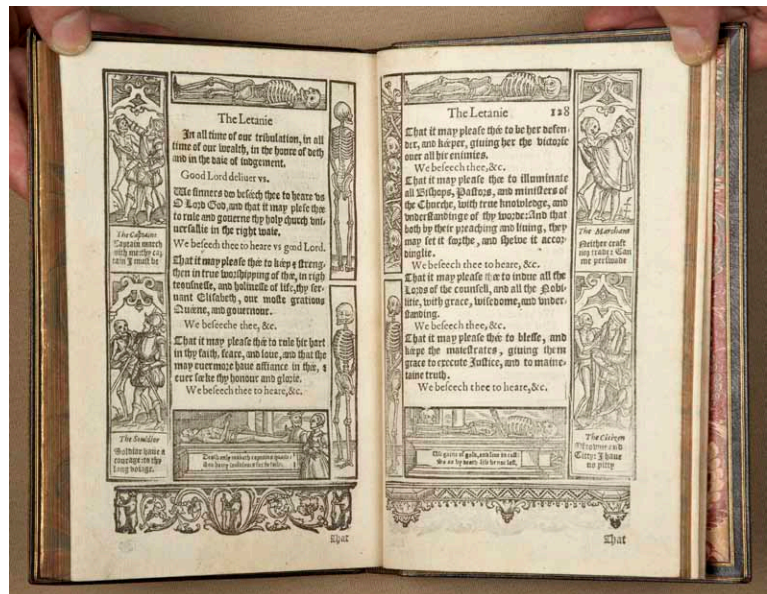 The Letanie
In all time of our tribulation, in all
time of our wealth, in the houre of deth
and in the daie of iudgement.
Good Lord deliuer vs.
We sinners do beséech thee to heare vs
O Lord God, and that it may plese thee
to rule and gouerne thy holy church vni-
uersallie in the right waie.
We beseech thee to heare vs good Lord.
That it may please thée to kéep & streng-
then in true worshipping of thée, in righ
teousnesse, and holinesse of life, thy ser-
uant Elisabeth, our moste gratious
Quéene, and gouernour.
We beseeche thee, &c.
That it may please thée to rule hir hart
in thy faith, feare, and loue, and that she
may euermore haue affiance in thée, &
euer séeke thy honour and glorie.
We beseech thee to heare, &c.
The Captaine
Captain march
with me: thy cap
tain I must be
The Souldier
Soldiar haue a
courage: to thy
long voiage.
That
The Letanie 128
That it may please thée to be her defen-
der, and kéeper, giuing her the victorie
ouer all hir enimies.
We beseech thee, &c.
That it may please thée to illuminate
all Bishops, Pastors, and ministers of
the Churche, with true knowledge, and
vnderstandinge of thy worde: And that
both by their preaching and liuing, they
may set it forthe, and shewe it accor-
dinglie.
We beseech thee to heare, &c.
That it may please thée to indue all the
Lords of the counsell, and all the Nobi-
litie, with grace, wisedome, and vnder-
standing.
We beseech thee, &c.
That it may please thée to blesse, and
kéepe the maiestrates, giuing them
grace to execute Iustice, and to maine-
taine truth.
We beseech thee to heare, &c.
The Marchant
Neither craft
nor trade: Can
me perswade
The Citizen
and
Citty: I haue
no pitty
of gold, and
by death life be not lost.
That